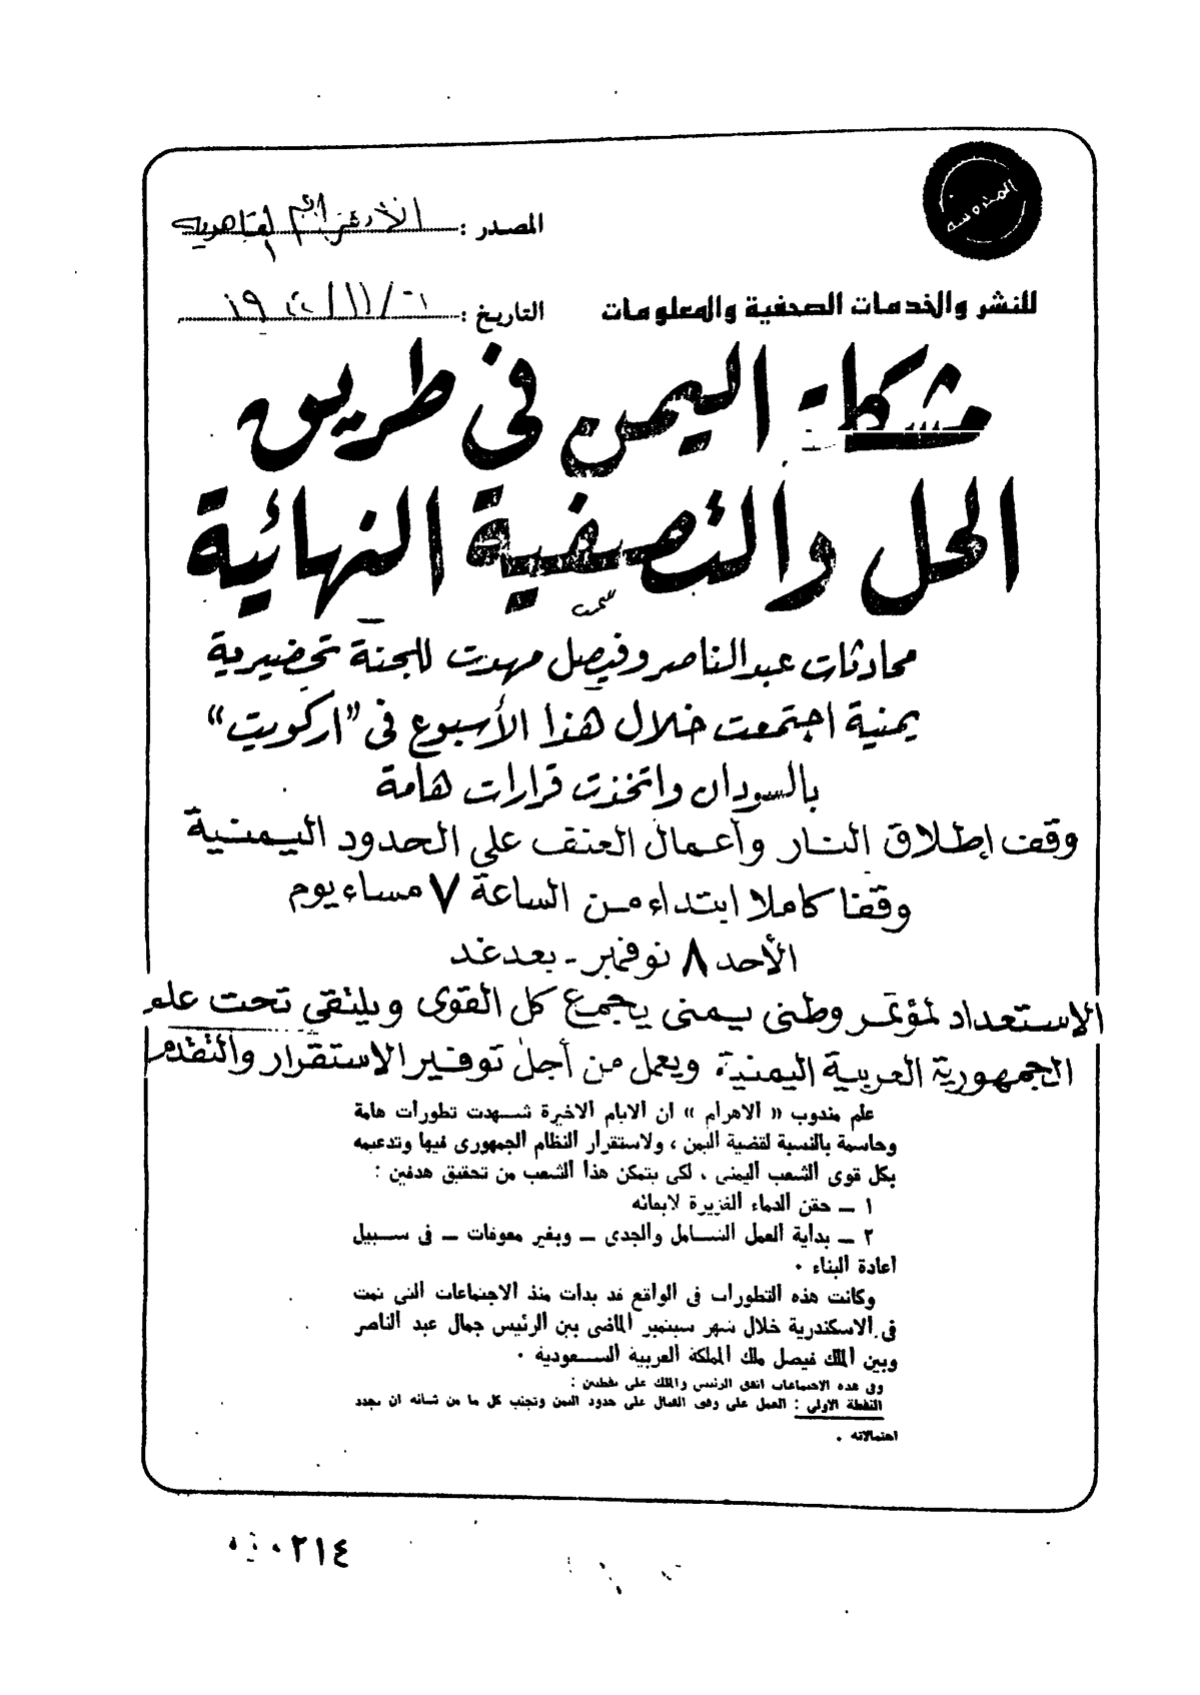 المحروسة
المصدر : الأهرام القاهرية
للنشر والخدمات الصحفية والمعلومات
التاريخ : ١١ / ١٩
مشكلة اليمن فى طريق
الحل والتصفية النهائية
محادثات عبدالناصر وفيصل مهدت للجنة تحضيرية
يمنية اجتمعت خلال هذا الأسبوع فى "اركويت"
بالسودان واتخذت قرارات هامة
وقف إطلاق النار وأعمال العنف على الحدود اليمنية
وقفا كاملا ابتداء من الساعة ٧ مساء يوم
الأحد ٨ نوفمبر - بعد غد
الاستعداد لمؤتمر وطنى يمنى يجمع كل القوى ويلتقى تحت علم
الجمهورية العربية اليمنية ويعمل من أجل توفير الاستقرار والتقدم
علم مندوب « الاهرام » ان الايام الاخيرة شهدت تطورات هامة
وحاسمة بالنسبة لقضية اليمن ، ولاستقرار النظام الجمهورى فيها وتدعيمه
بكل قوى الشعب اليمنى ، لكى يتمكن هذا الشعب من تحقيق هدفين :
١ — حقن الدماء الغزيرة لابنائه
٢ — بداية العمل الشامل والجدى — وبغير معوقات — فى سبيل
اعادة البناء .
وكانت هذه التطورات فى الواقع قد بدات منذ الاجتماعات التى تمت
فى الاسكندرية خلال شهر سبتمبر الماضى بين الرئيس جمال عبد الناصر
وبين الملك فيصل ملك المملكة العربية السعودية .
وفى هذه الاجتماعات اتفق الرئيس والملك على نقطتين :
النقطة الاولى : العمل على وقف القتال على حدود اليمن وتجنب كل ما من شانه ان يجدد
احتمالاته .
٠٢١٤